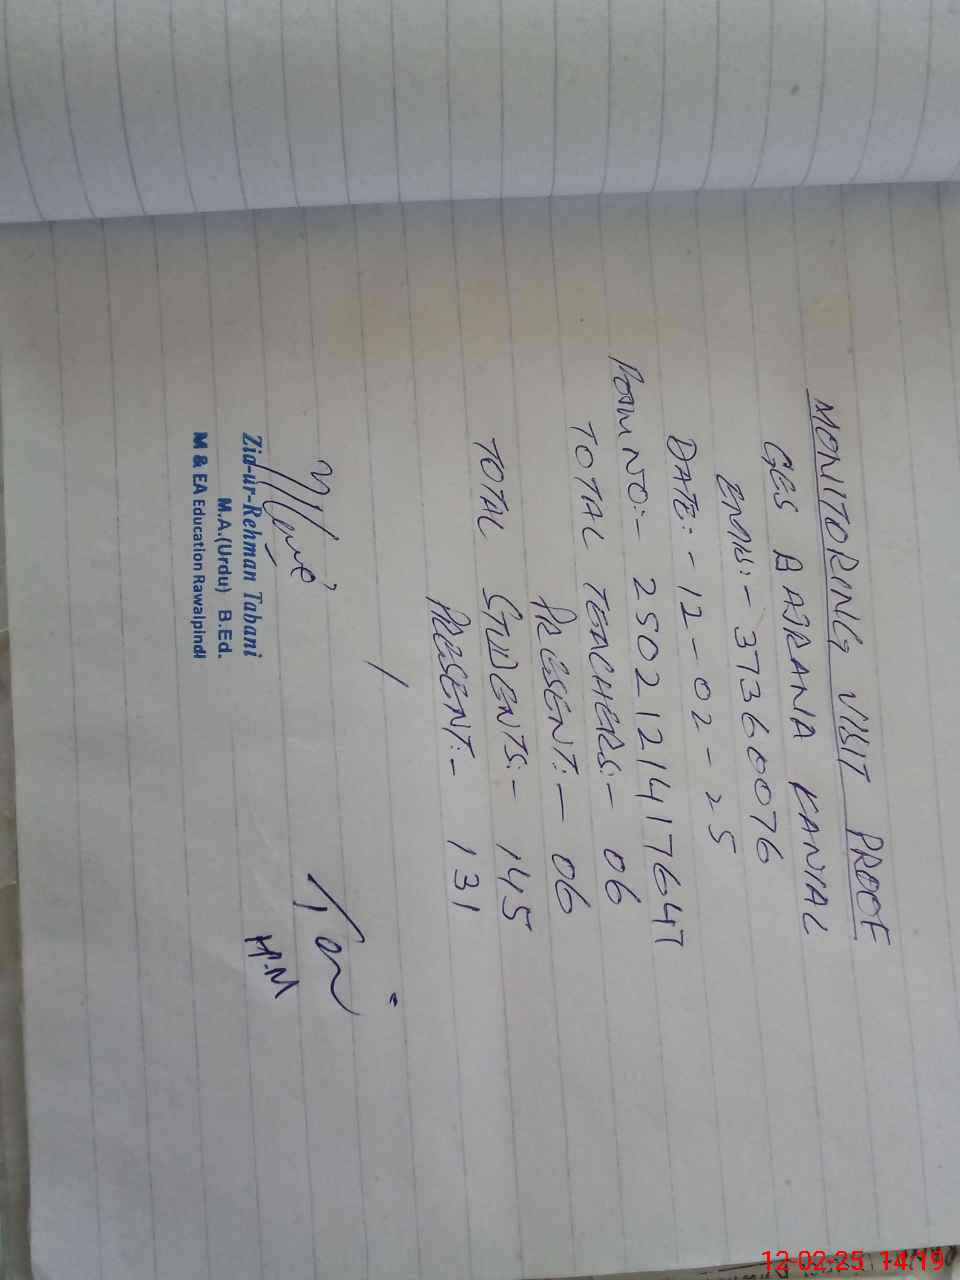 MONITORING VISIT PROOF
GES BAJRANA KANIAL
EMIS:- 37360076
DATE:- 12-02-25
FORM NO:- 250212141764
TOTAL TEACHERS:- 06
PRESENT:- 06
TOTAL STUDENTS:- 145
PRESENT:- 131
H.M
Zia-ur-Rehman Tabani
M.A.(Urdu) B.Ed.
M & EA Education Rawalpindi
12-02-25 14:19